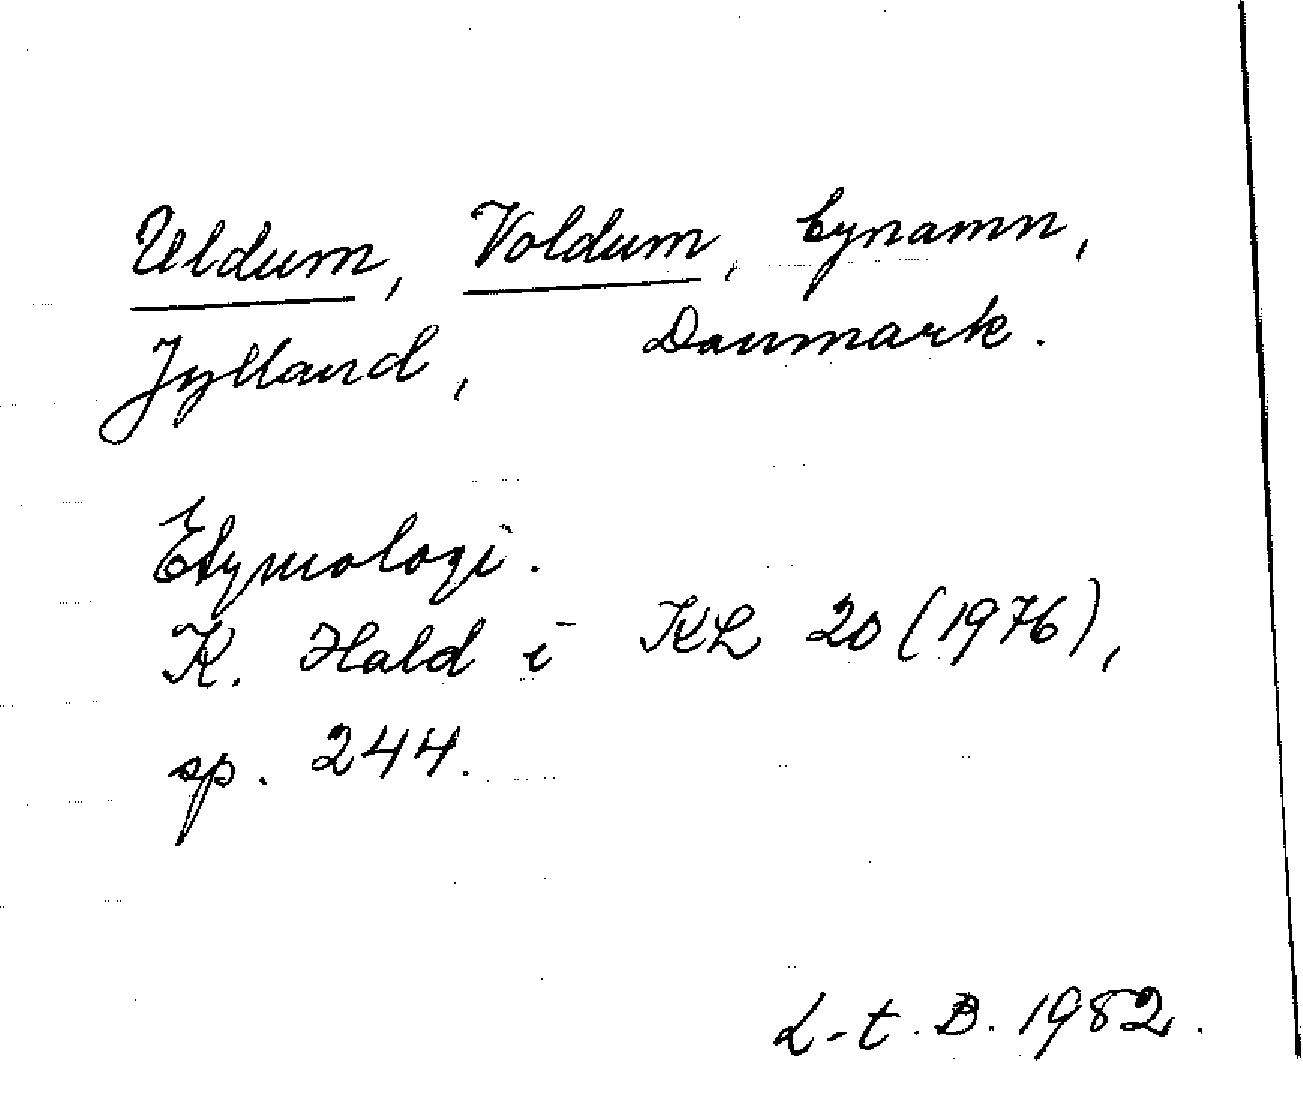 Uldum, Voldum, bynamn,
Jylland, Danmark.
Etymologi.
K. Hald i KL 20 (1976),
sp. 244.
L-t. B. 1982.